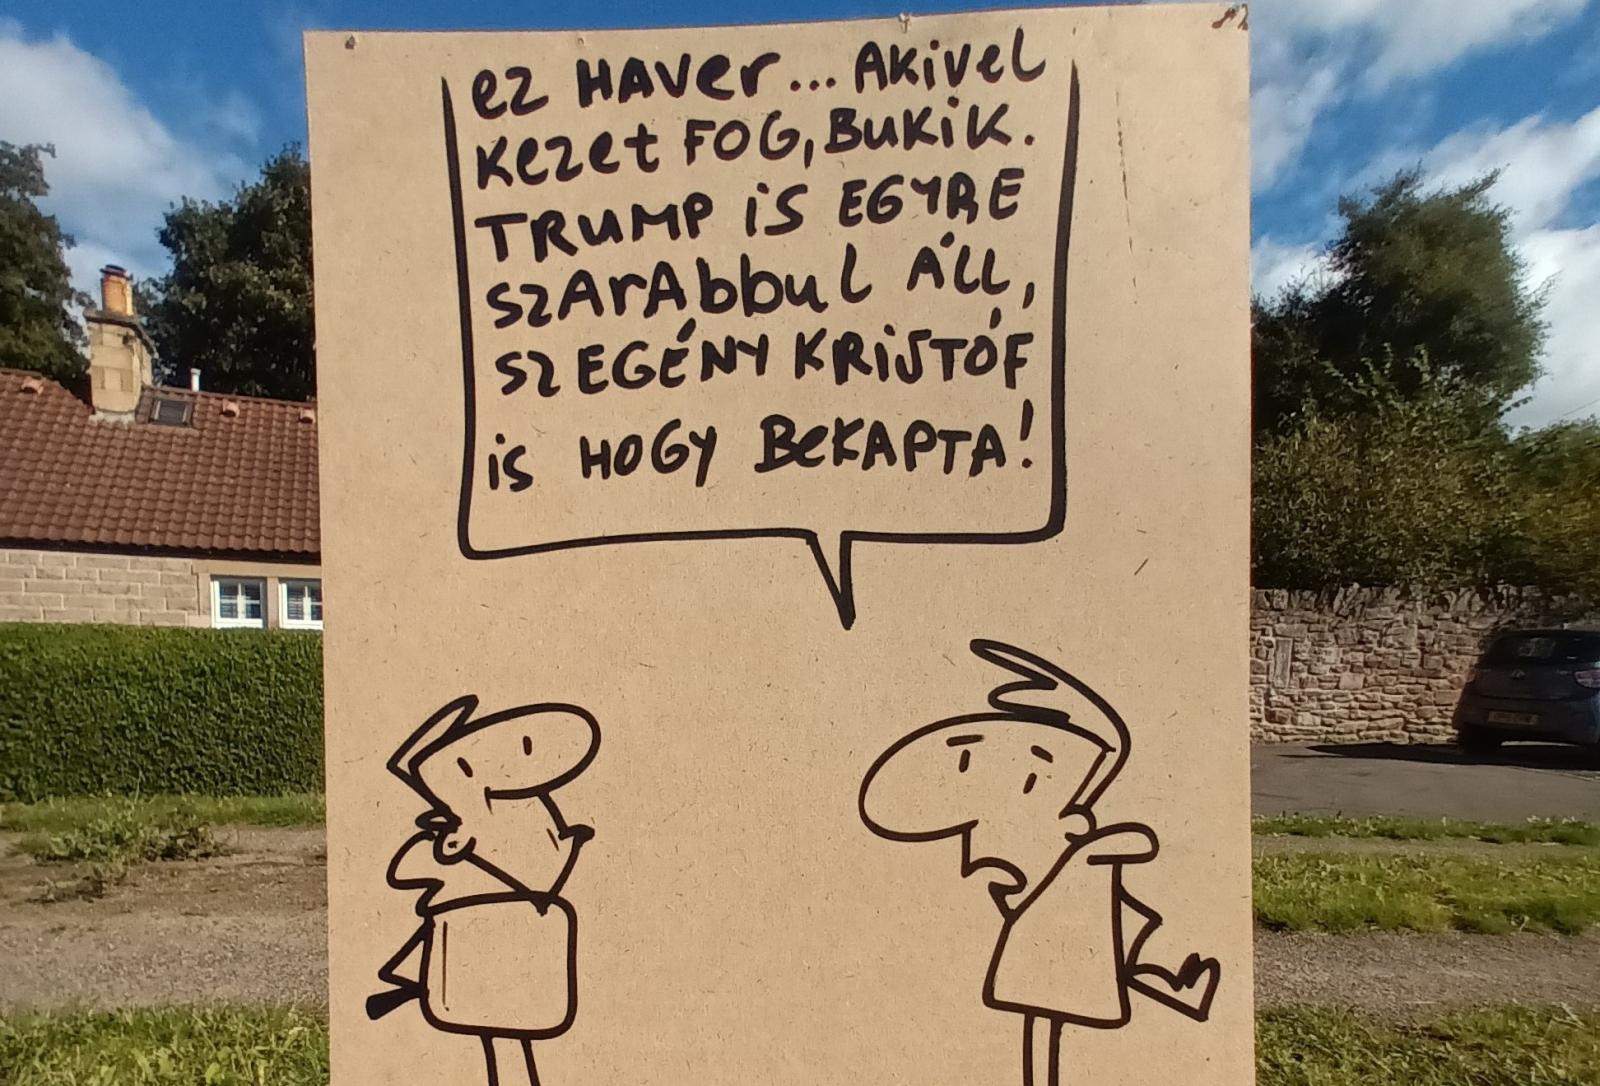 ez HAver... AKivel
Kezet FOG, BuKiK.
TRUMP iS EGYRE
SZArAbbul ÁLL,
SZEGÉNY KRISTÓF
is HOGY BeKAPTA!